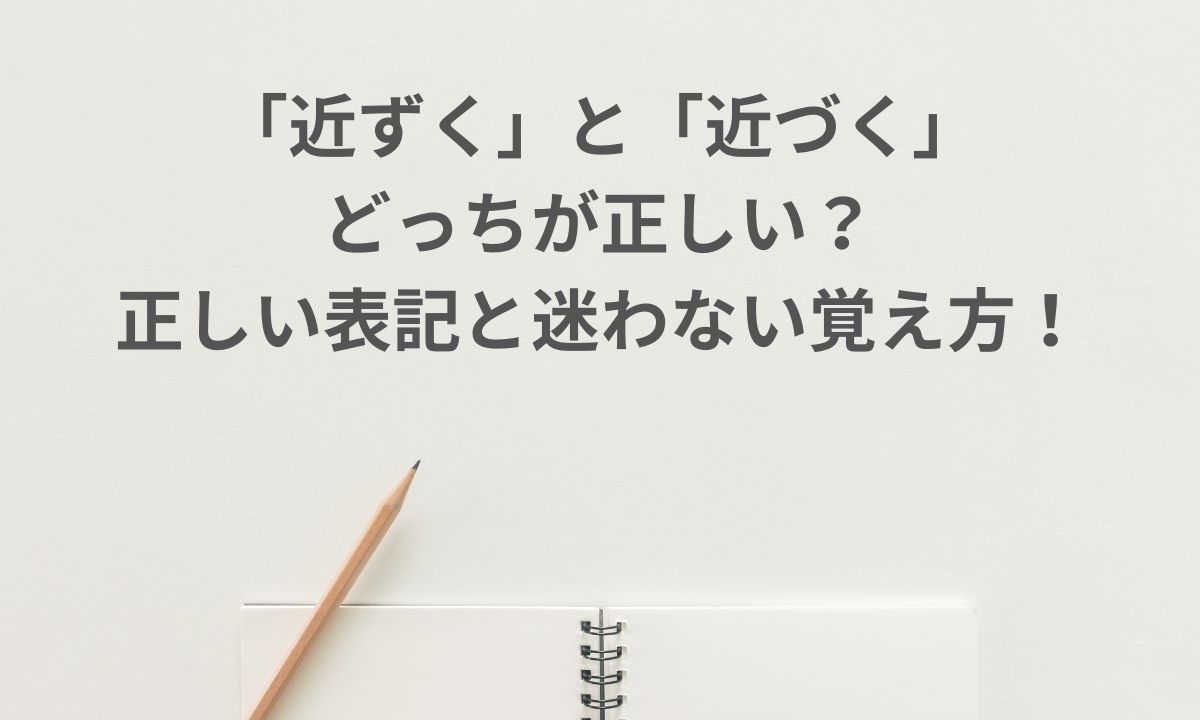 「近ずく」と「近づく」
どっちが正しい？
正しい表記と迷わない覚え方！